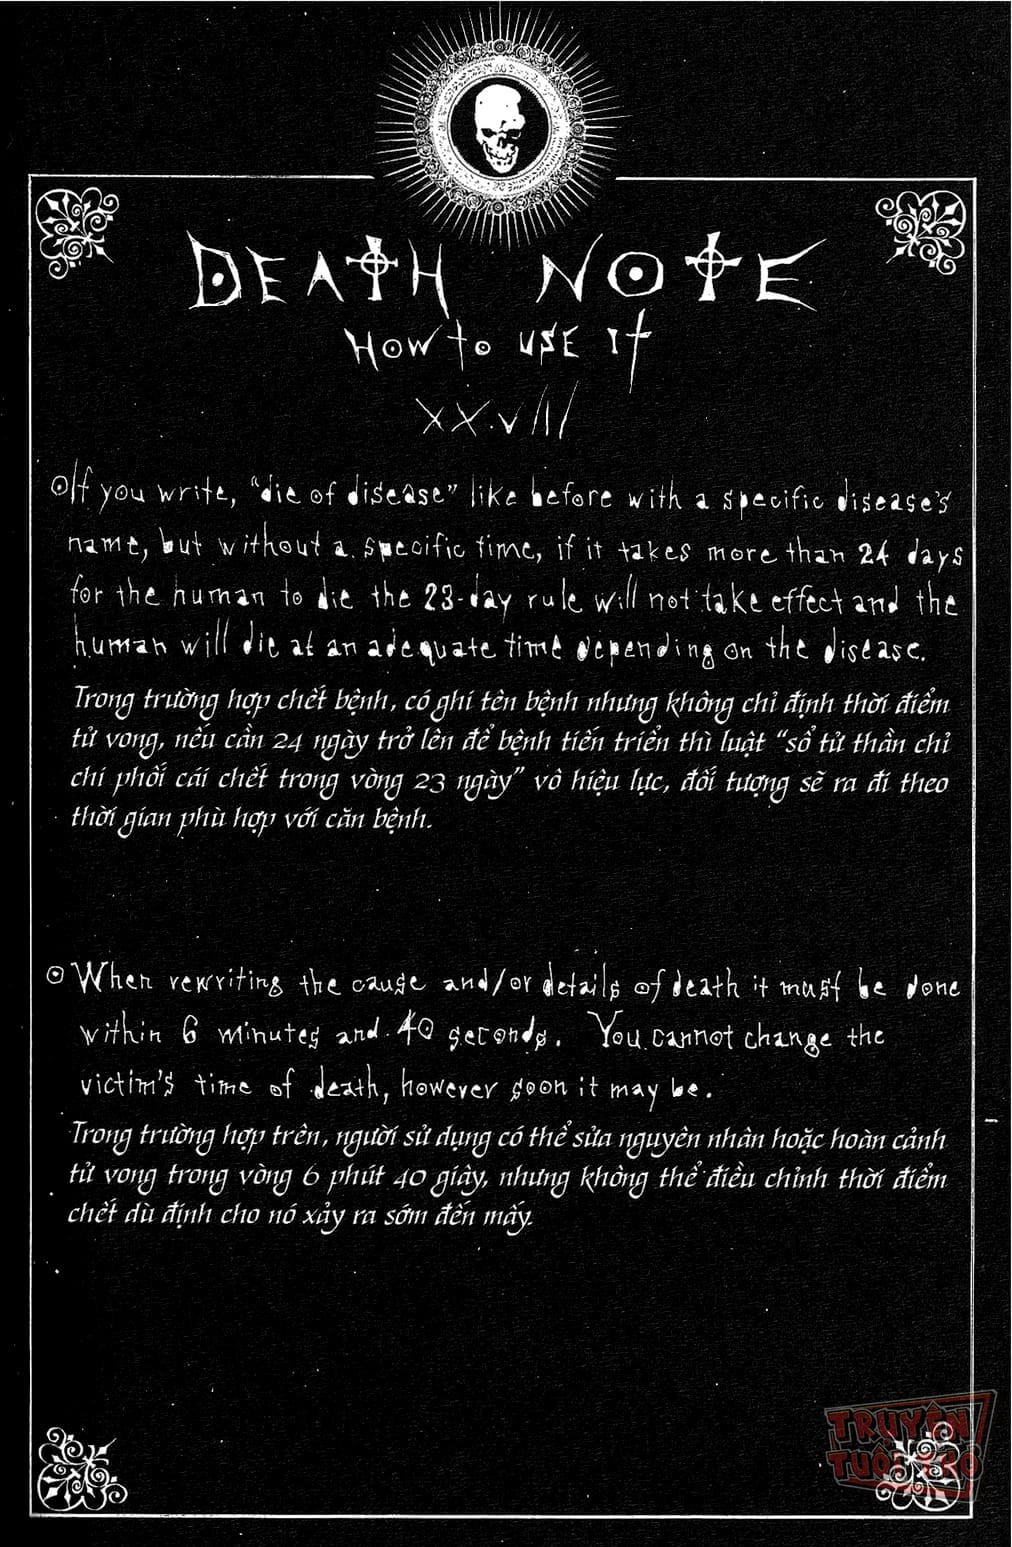 DEATH NOTE
HOW to USE It
XXVIII
If you write, "die of disease" like before with a specific disease's
name, but without a specific time, if it takes more than 24 days
for the human to die the 23-day rule will not take effect and the
human will die at an adequate time depending on the disease.
Trong trường hợp chết bệnh, có ghi tên bệnh nhưng không chỉ định thời điểm
tử vong, nếu cần 24 ngày trở lên để bệnh tiến triển thì luật "sổ tử thần chỉ
chi phối cái chết trong vòng 23 ngày" vô hiệu lực, đối tượng sẽ ra đi theo
thời gian phù hợp với căn bệnh.
When rewriting the cause and/or details of death it must be done
within 6 minutes and 40 seconds. You cannot change the
victim's time of death, however soon it may be.
Trong trường hợp trên, người sử dụng có thể sửa nguyên nhân hoặc hoàn cảnh
tử vong trong vòng 6 phút 40 giây, nhưng không thể điều chỉnh thời điểm
chết dù định cho nó xảy ra sớm đến mấy.
TRUYỆN
TUỔI TRẺ